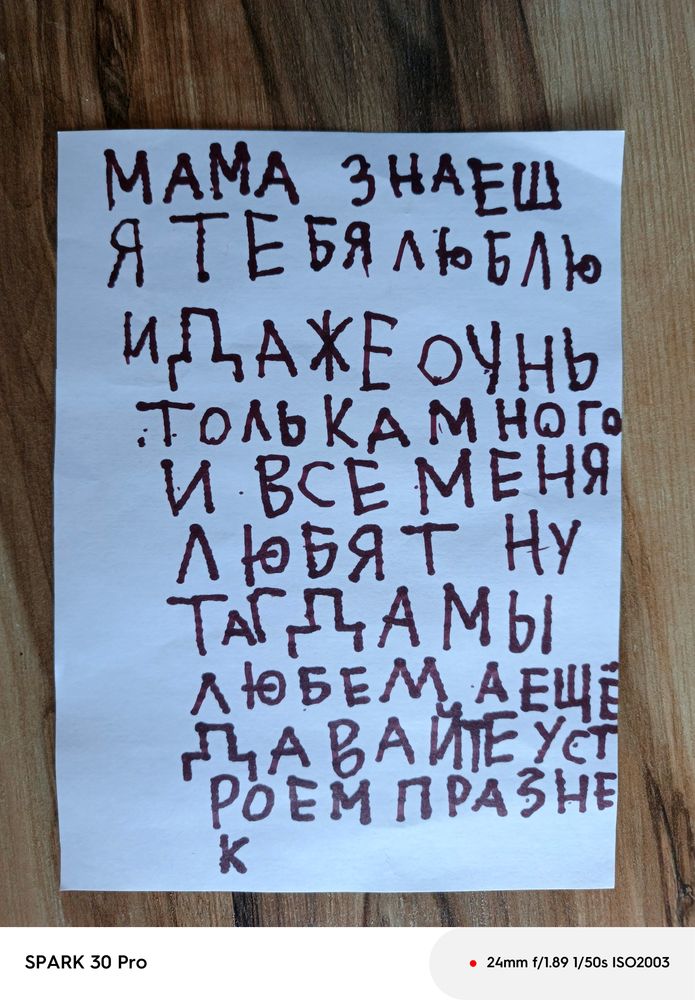 МАМА ЗНАЕШ
Я ТЕБЯ ЛЮБЛЮ
И ДАЖЕ ОЧНЬ
ТОЛЬКА МНОГО
И ВСЕ МЕНЯ
ЛЮБЯТ НУ
ТАГДА МЫ
ЛЮБЕМ А ЕЩЁ
ДАВАЙТЕ УСТ
РОЕМ ПРАЗНЕ
К
SPARK 30 Pro
24mm f/1.89 1/50s ISO2003